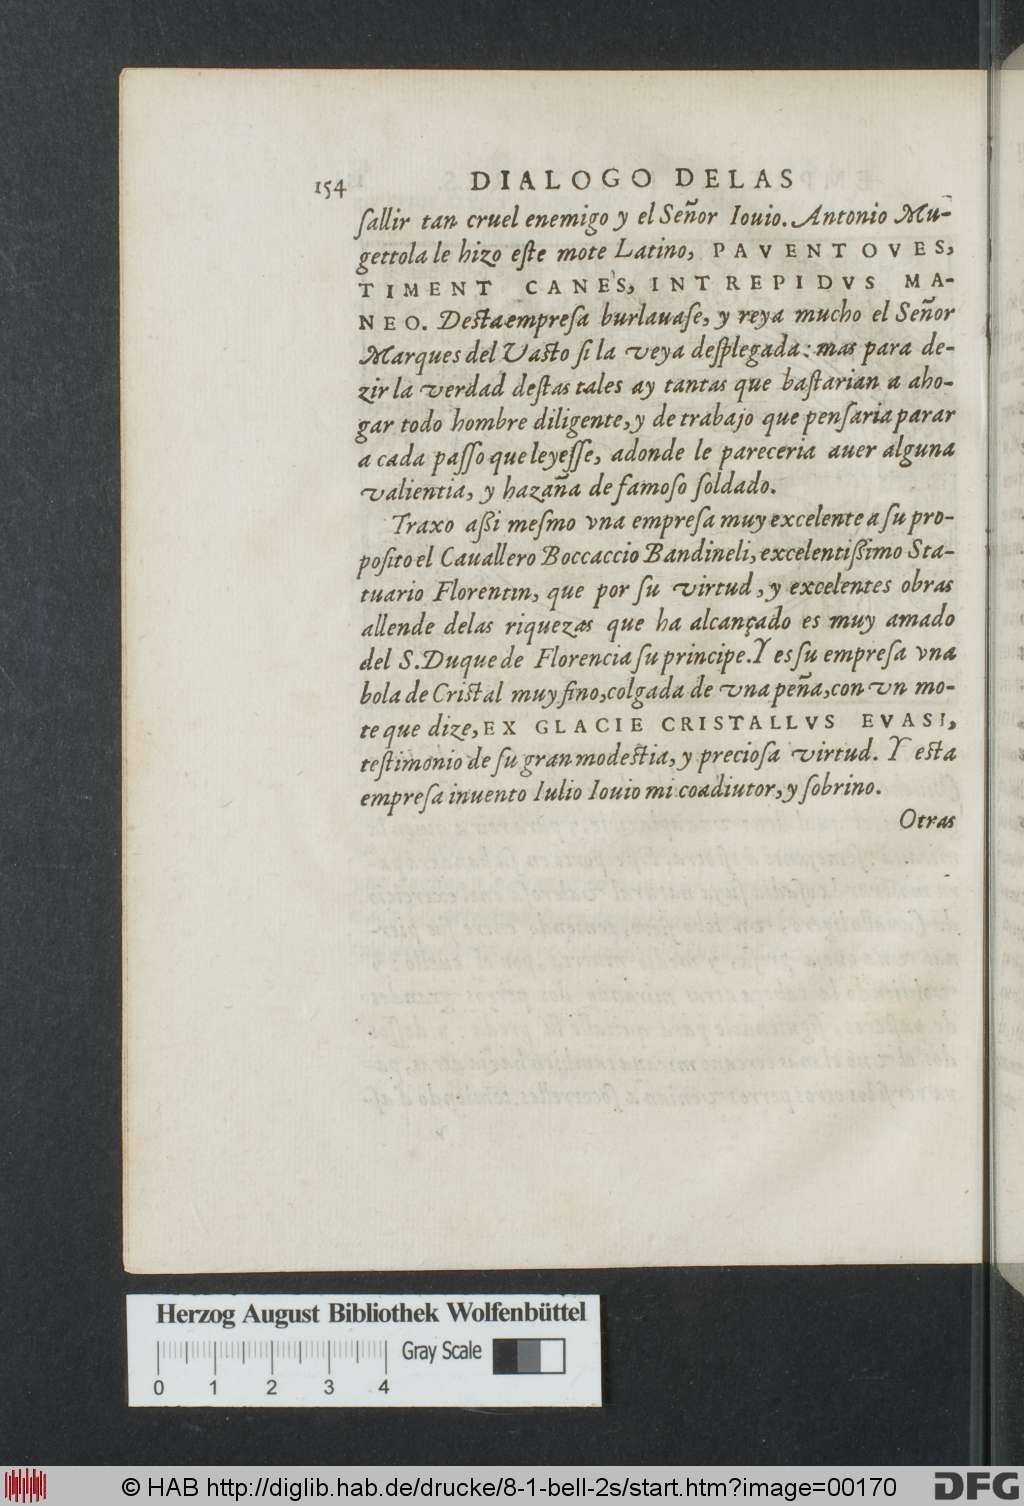 154 DIALOGO DELAS
ſallir tan cruel enemigo y el Señor Iouio. Antonio Mu-
gettola le hizo eſte mote Latino, PAVENT OVES,
TIMENT CANES, INTREPIDVS MA-
NEO. Deſta empreſa burlauaſe, y reya mucho el Señor
Marques del Vaſto ſi la veya deſplegada: mas para de-
zir la verdad deſtas tales ay tantas que baſtarian a aho-
gar todo hombre diligente, y de trabajo que penſaria parar
a cada paſſo que leyeſſe, adonde le pareceria auer alguna
valientia, y hazaña de famoſo ſoldado.
Traxo aßi meſmo vna empreſa muy excelente a ſu pro-
poſito el Cauallero Boccaccio Bandineli, excelentißimo Sta-
tuario Florentin, que por ſu virtud, y excelentes obras
allende delas riquezas que ha alcançado es muy amado
del S. Duque de Florencia ſu principe. Y es ſu empreſa vna
bola de Criſtal muy fino, colgada de vna peña, con vn mo-
te que dize, EX GLACIE CRISTALLVS EVASI,
teſtimonio de ſu gran modeſtia, y precioſa virtud. Y eſta
empreſa inuento Iulio Iouio mi coadiutor, y ſobrino.
Otras
Herzog August Bibliothek Wolfenbüttel
Gray Scale
0 1 2 3 4
© HAB http://diglib.hab.de/drucke/8-1-bell-2s/start.htm?image=00170
DFG